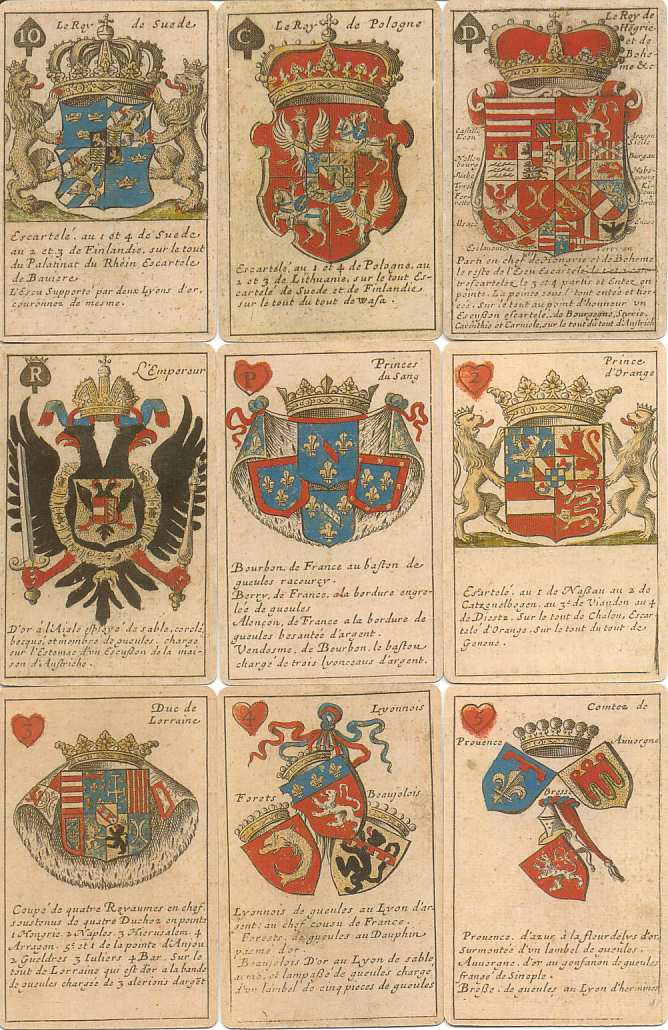 10
Le Roy de Suede
Escartelé, au 1 et 4 de Suede
au 2 et 3 de Finlandie, sur le tout
du Palatinat du Rhein Escartele
de Baviere
L'Escu Supporté par deux Lyons d'or,
couronnez de mesme.
C
Le Roy de Pologne
Escartelé, au 1 et 4 de Pologne, au
2 et 3 de Lithuanie, sur le tout Es-
cartelé de Suede et de Finlandie
sur le tout du tout de Wasa.
D
Le Roy de
Hõgrie
et de
Bohe-
me &c
Castille
Arragon
Sicile
Burgau
Tyrol
Parti en chef de Hongrie et de Boheme
le reste de l'Escu Escartelé, le 1 et 2 con-
trescartelez le 3 et 4 parti et Entez en
pointe. La pointe sous le tout entee et
Sur le tout au point d'honneur un
Escusson escartelé, de Bourgogne, Styrie,
Carinthie et Carniole, sur le tout du tout d'Austrich
R
L'Empereur
D'or à l'Aigle esployé de sable, cerclé,
becqué, et membré de gueules, chargé
sur l'Estomac d'un Escusson de la mai-
son d'Austriche.
P
Princes
du Sang
Bourbon, de France au baston de
gueules racourcy.
Berry, de France, a la bordure engre-
lée de gueules
Alençon, de France a la bordure de
gueules besantée d'argent.
Vendosme, de Bourbon, le baston
chargé de trois lyonceaux d'argent.
2
Prince
d'Orange
Escartelé, au 1 de Naßau au 2 de
Catzenelbogen, au 3e de Viandon au 4
de Diestz. Sur le tout de Chalon, Escar-
telé d'Orange. Sur le tout du tout de
Geneve.
3
Duc de
Lorraine
Coupé de quatre Royaumes en chef,
soustenus de quatre Duchez en pointe
1 Hongrie 2 Naples 3 Hierusalem 4
Arragon. 5t et 1 de la pointe d'Anjou
2 Gueldres 3 Iuliers 4 Bar. Sur le
tout de Lorraine qui est d'or a la bande
de gueules chargée de 3 alerions d'argẽt
4
Lyonnois
Forets
Beaujolois
Lyonnois de gueules au Lyon d'ar-
gent: au chef cousu de France.
Forests, de gueules au Dauphin
pasmé d'or.
Beaujolois D'or au Lyon de sable
armé et lampaßé de gueules chargé
d'un lambel de cinq pieces de gueules
5
Comtez de
Provence
Auvergne
Bresse
Provence, d'azur à la fleur de lys d'or,
Surmontée d'un lambel de gueules.
Auvergne, d'or au gonfanon de gueules
frangé de Sinople.
Breße: de gueules au Lyon d'hermines